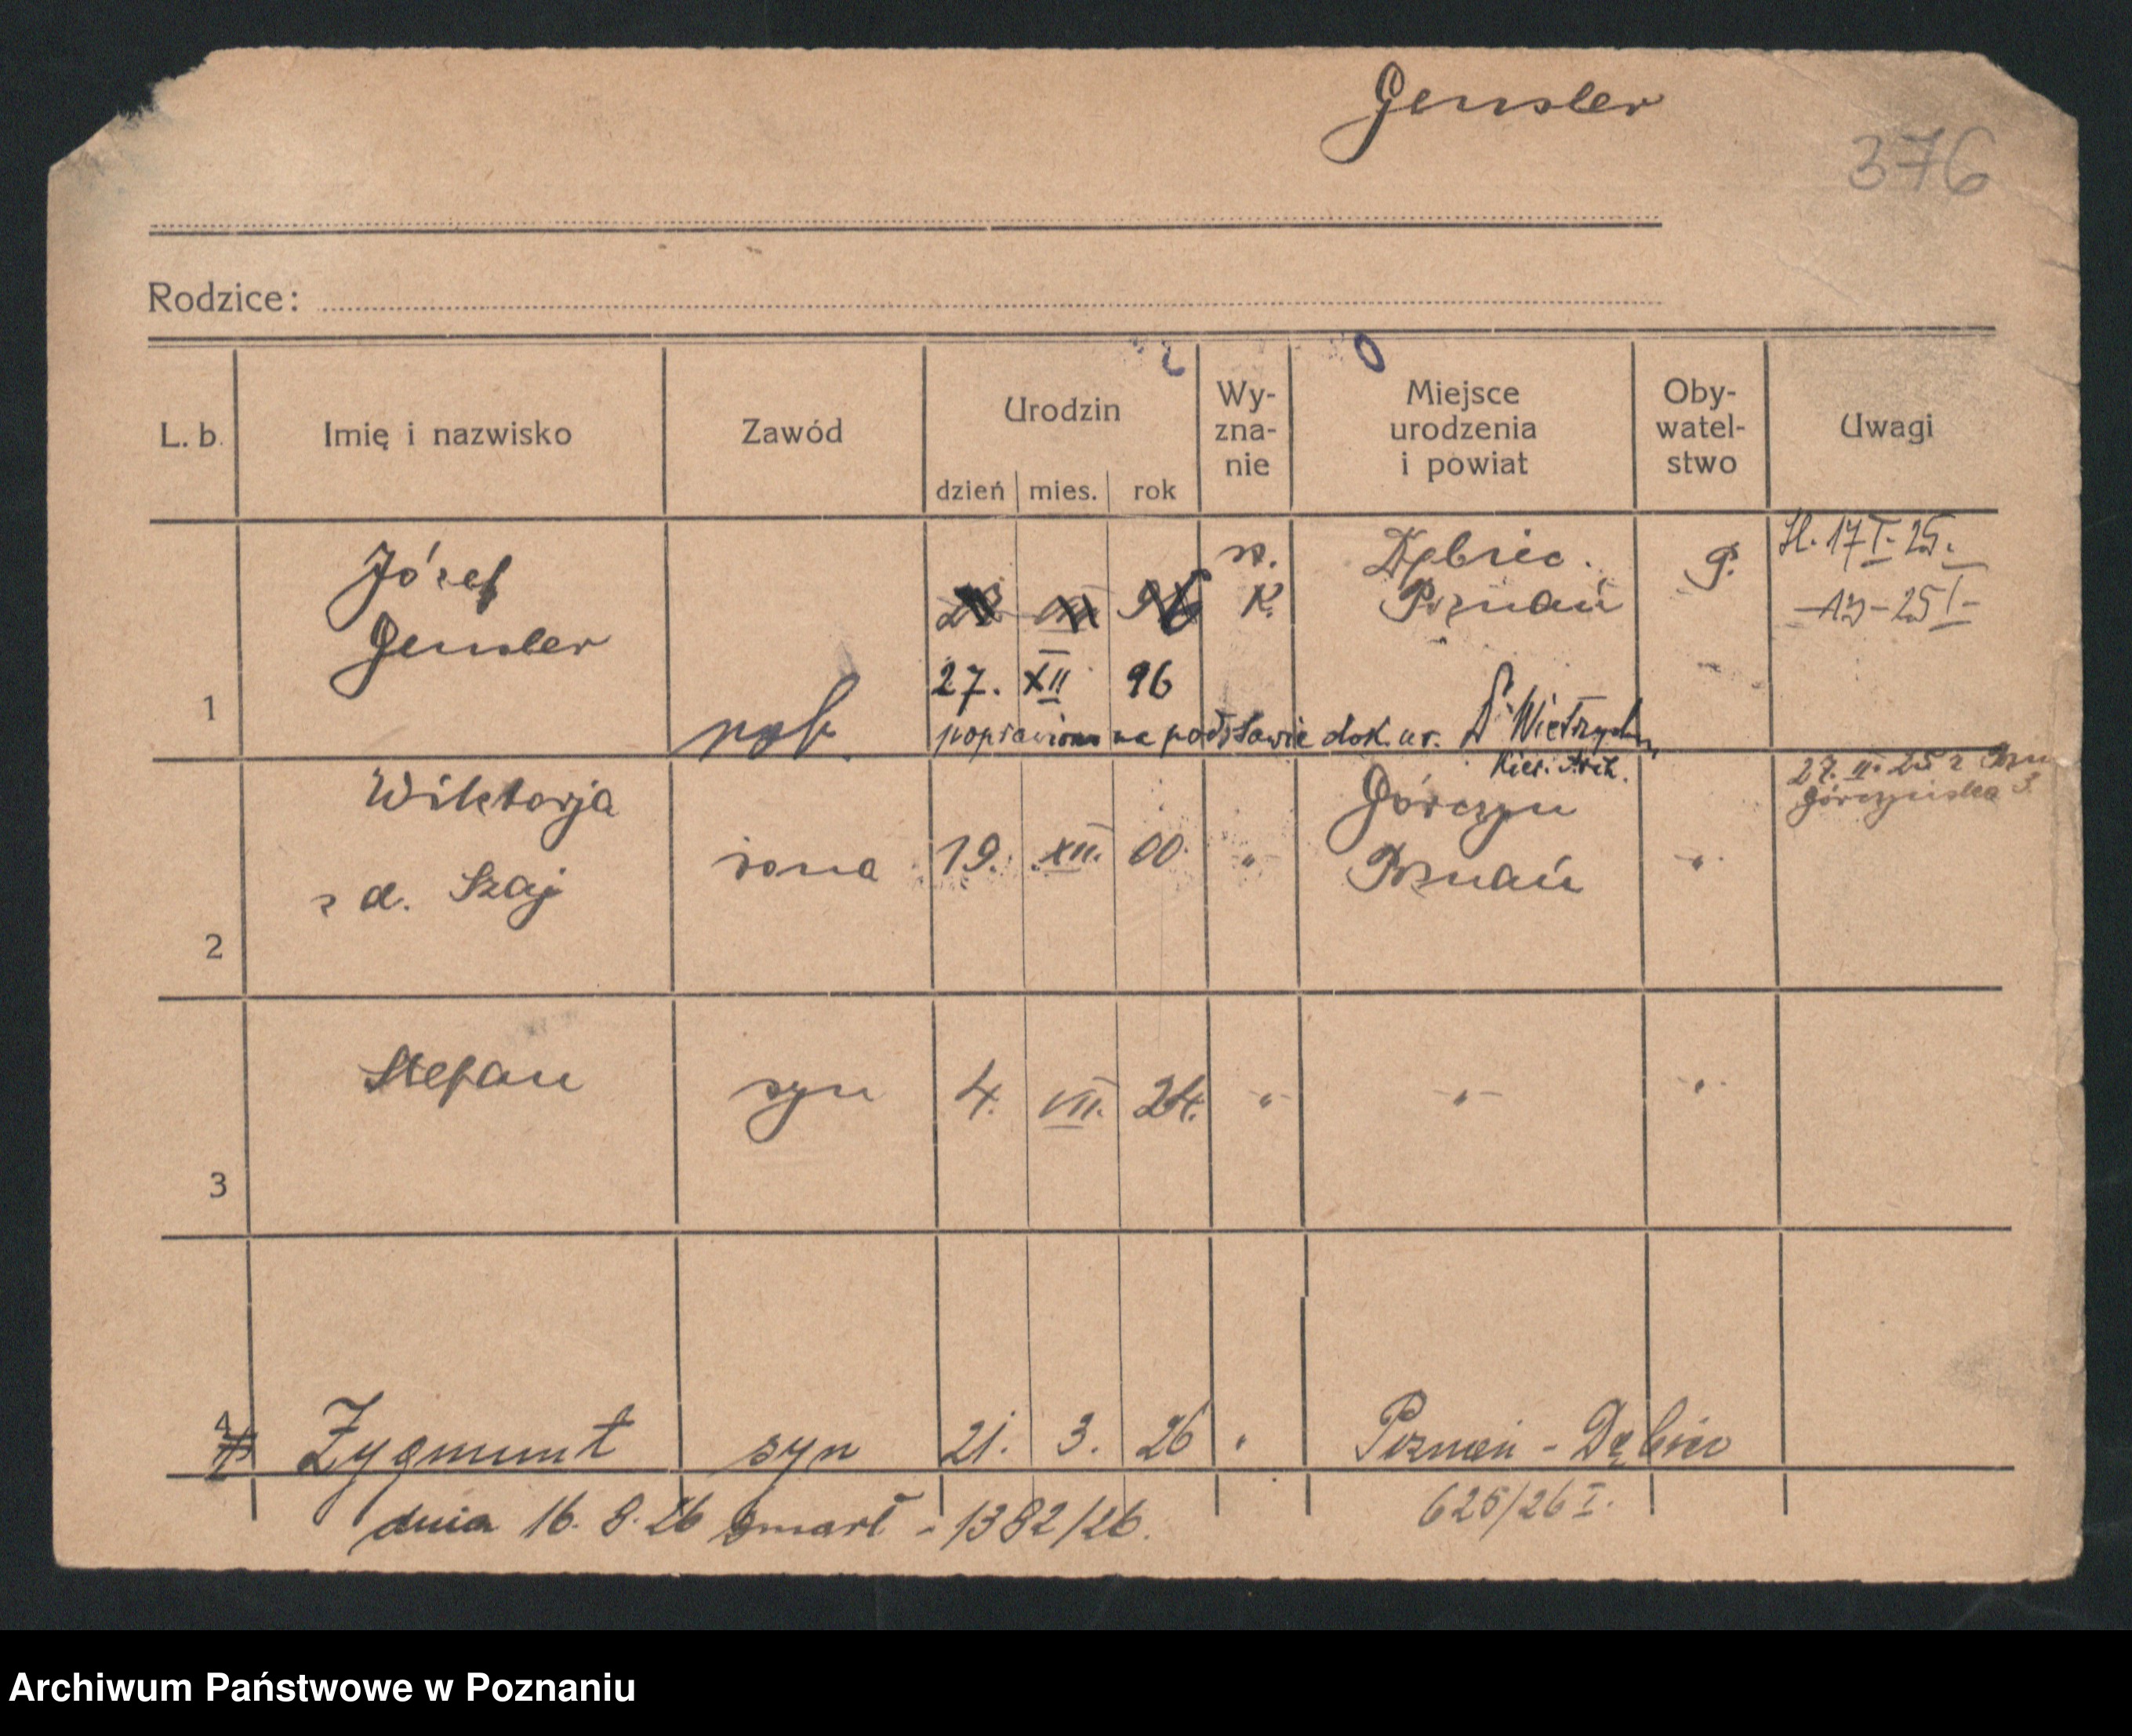 Gensler
376
Rodzice:
L. b. Imię i nazwisko Zawód Urodzin dzień mies. rok Wy-zna-nie Miejsce urodzenia i powiat Oby-watel-stwo Uwagi
Józef Dębiec. 17 I. 25.
Gensler K. Poznań 25 I
27. XII 96
1 rob. poprawiono na podstawie dok. ur.
Kier. Arch.
Wiktorja Górczyn 27. II. 25 z
z d. Szaj żona 19. XII. 00. " Poznań "
2
Stefan syn 4. VII. 24. " " "
3
4 Zygmunt syn 21. 3. 26 " Poznań - Dębiec
dnia 16. 8. 26 zmarł - 1382/26. 625/26 I.
Archiwum Państwowe w Poznaniu